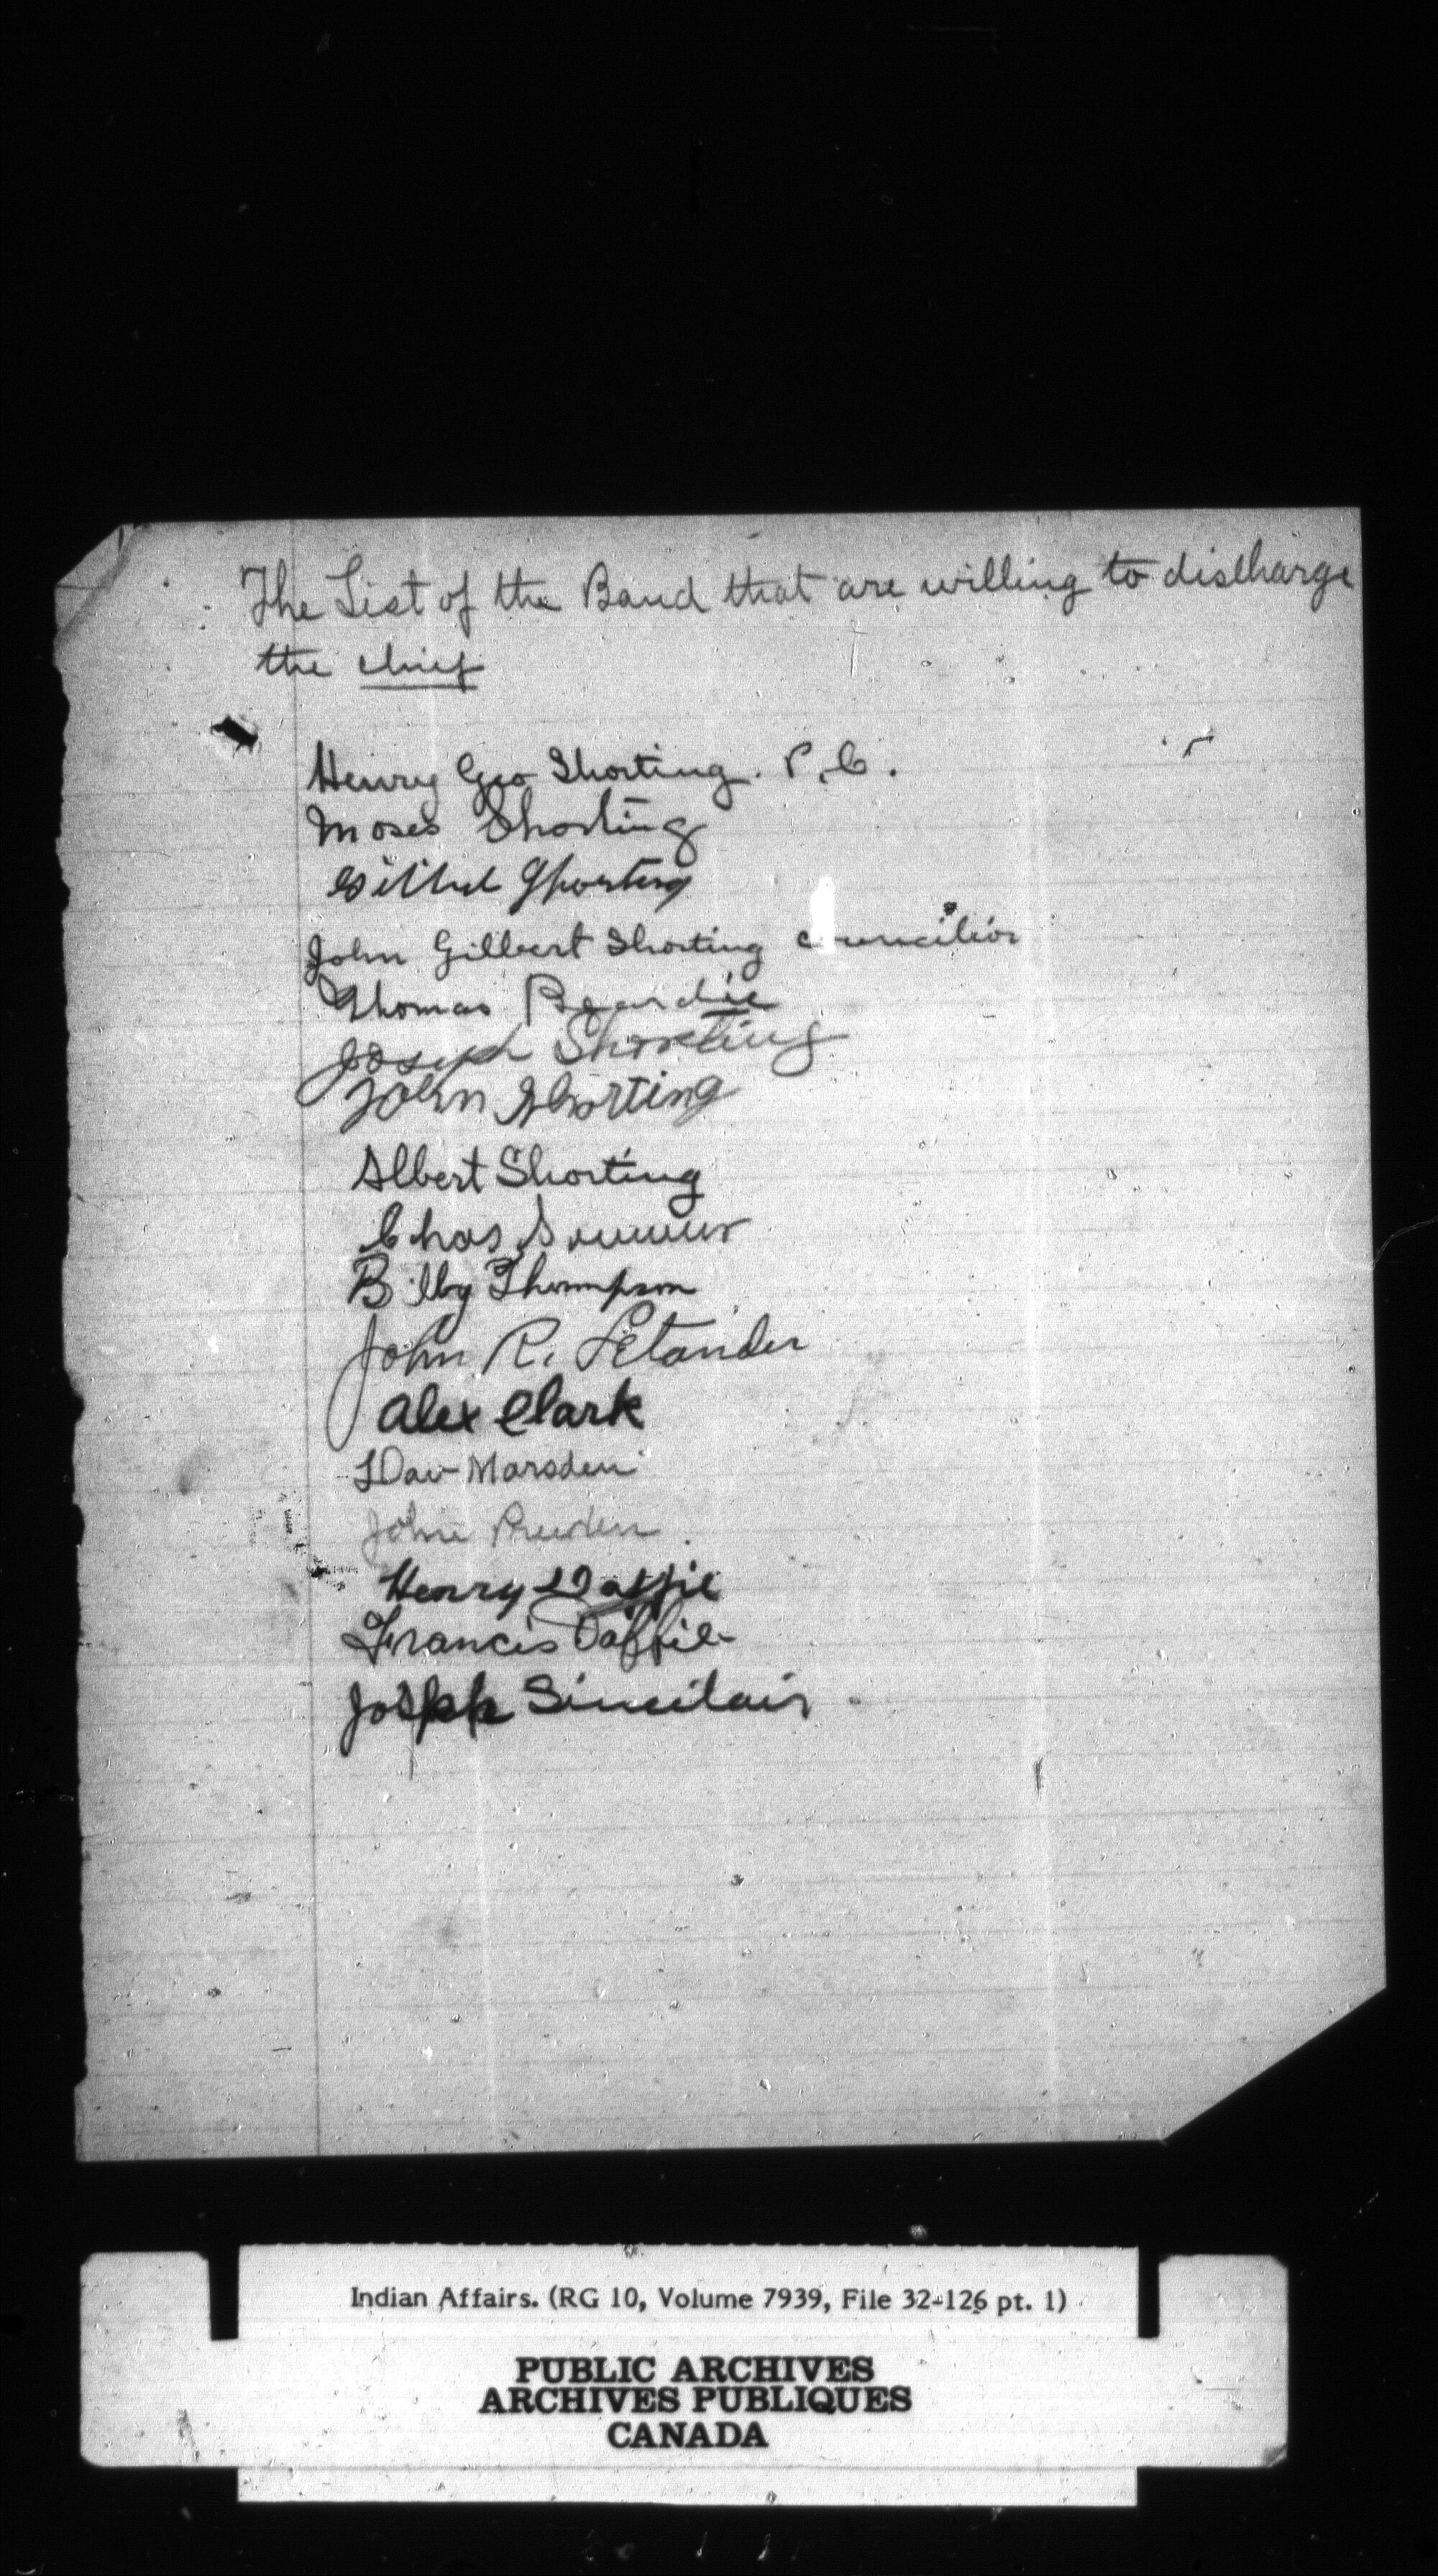 The List of the Band that are willing to discharge
the chief
Henry Geo Shorting. P. C.
Moses Shorting
Shorting
John Gilbert Shorting councilior
Thomas Beardie
Joseph Shorting
John Shorting
Albert Shorting
Chas
Billy Thompson
John R. Letander
Alex Clark
Marsden
John Pruden
Henry Daffie
Francis Daffie
Joseph Sincilair
Indian Affairs. (RG 10, Volume 7939, File 32-126 pt. 1)
PUBLIC ARCHIVES
ARCHIVES PUBLIQUES
CANADA